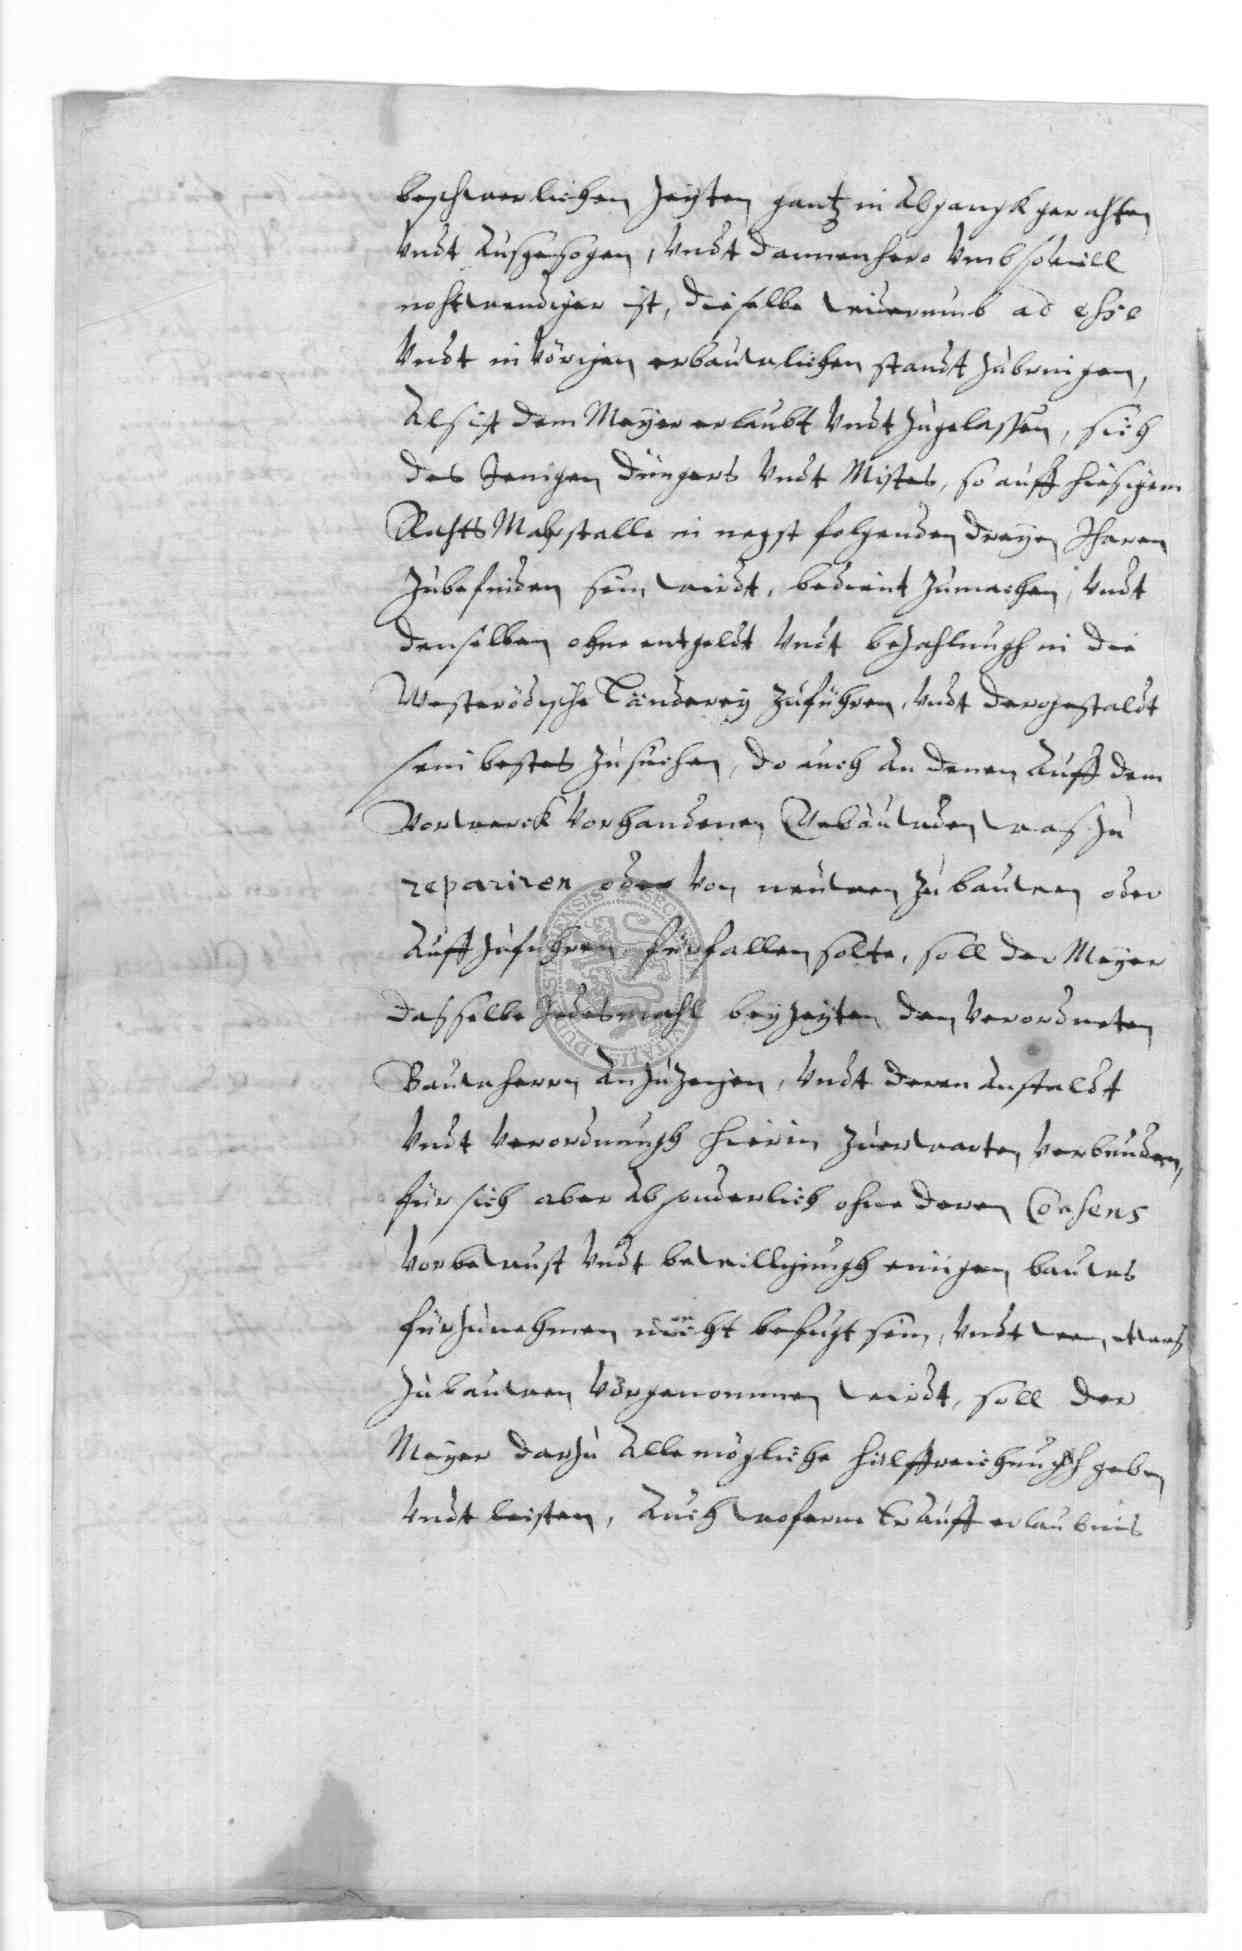 beschwerlichen Zeyten gantz in Abgangk gerahten
Vndt Außgesogen, Vndt dannenhero Vmb soviell
nohtwendiger ist, dieselbe widerumb ad esse
Vndt in Vörigen erbauwlichen standt zubringen,
Als ist dem Meyer erlaubt Vndt zugelassen, sich
des Jenigen düngers Vndt Mistes, so auff hiesigem
Rahts Marstalle in negst folgenden dreyen Jharen
zubefinden sein wirdt, bedient zumachen, Vndt
denselben ohne entgeldt Vndt bezahlungh in die
Westerödische Länderey zuführen, Vndt dergestaldt
sein bestes zusuchen, do auch An denen Auff dem
Vorwerck Vorhandenen Gebäuwden was zu
repariren oder Von neuwen zubauwen oder
Auffzuführen fürfallen solte, soll der Meyer
dasselbe Jedesmahl bey Zeyten den Verordneten
Bauwherrn Anzuzeigen, Vndt deren Anstaldt
Vndt Verordnungh hierin zuerwarten Verbunden,
für sich aber Absonderlich ohne deren Consens
Vorbewust Vndt bewilligungh einigen bauwes
fürzunehmen nicht befugt sein, Vndt wen etwas
zubauwen Vorgenommen wirdt, soll der
Meyer darzu Alle mögliche hülffreichungh geben
Vndt leisten, Auch woferne Er Auff erlaubnis
SECR CIVITATIS DUDERSTADENSIS